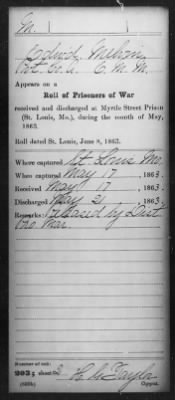 M.
Melvin
Pvt. Co. A. E. M. M.
Appears on a
Roll of Prisoners of War
received and discharged at Myrtle Street Prison
(St. Louis, Mo.), during the month of May,
1863.
Roll dated St. Louis, June 8, 1863.
Where captured St. Louis Mo.
When captured May 17, 1863.
Received May 17, 1863.
Discharged May 21, 1863.
Remarks: Released by Dist
Pro Mar
Number of roll:
203; sheet 2
Copyist.